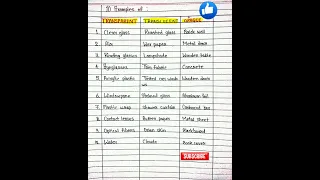 10 Examples of :
TRANSPARENT TRANSLUCENT OPAQUE
1. Clean glass Frosted glass Brick wall
2. Air Wax paper Metal door
3. Reading glasses Lampshade Wooden table
4. Eyeglasses Thin Fabric Concrete
5. Acrylic plastic Tinted car window Wooden door
6. Windscreen Stained glass Aluminum foil
7. Plastic wrap Shower curtain Cardboard box
8. Contact lenses Butter paper Metal sheet
9. Optical fibers Skin Blackboard
10. Water Clouds Book cover
SUBSCRIBE